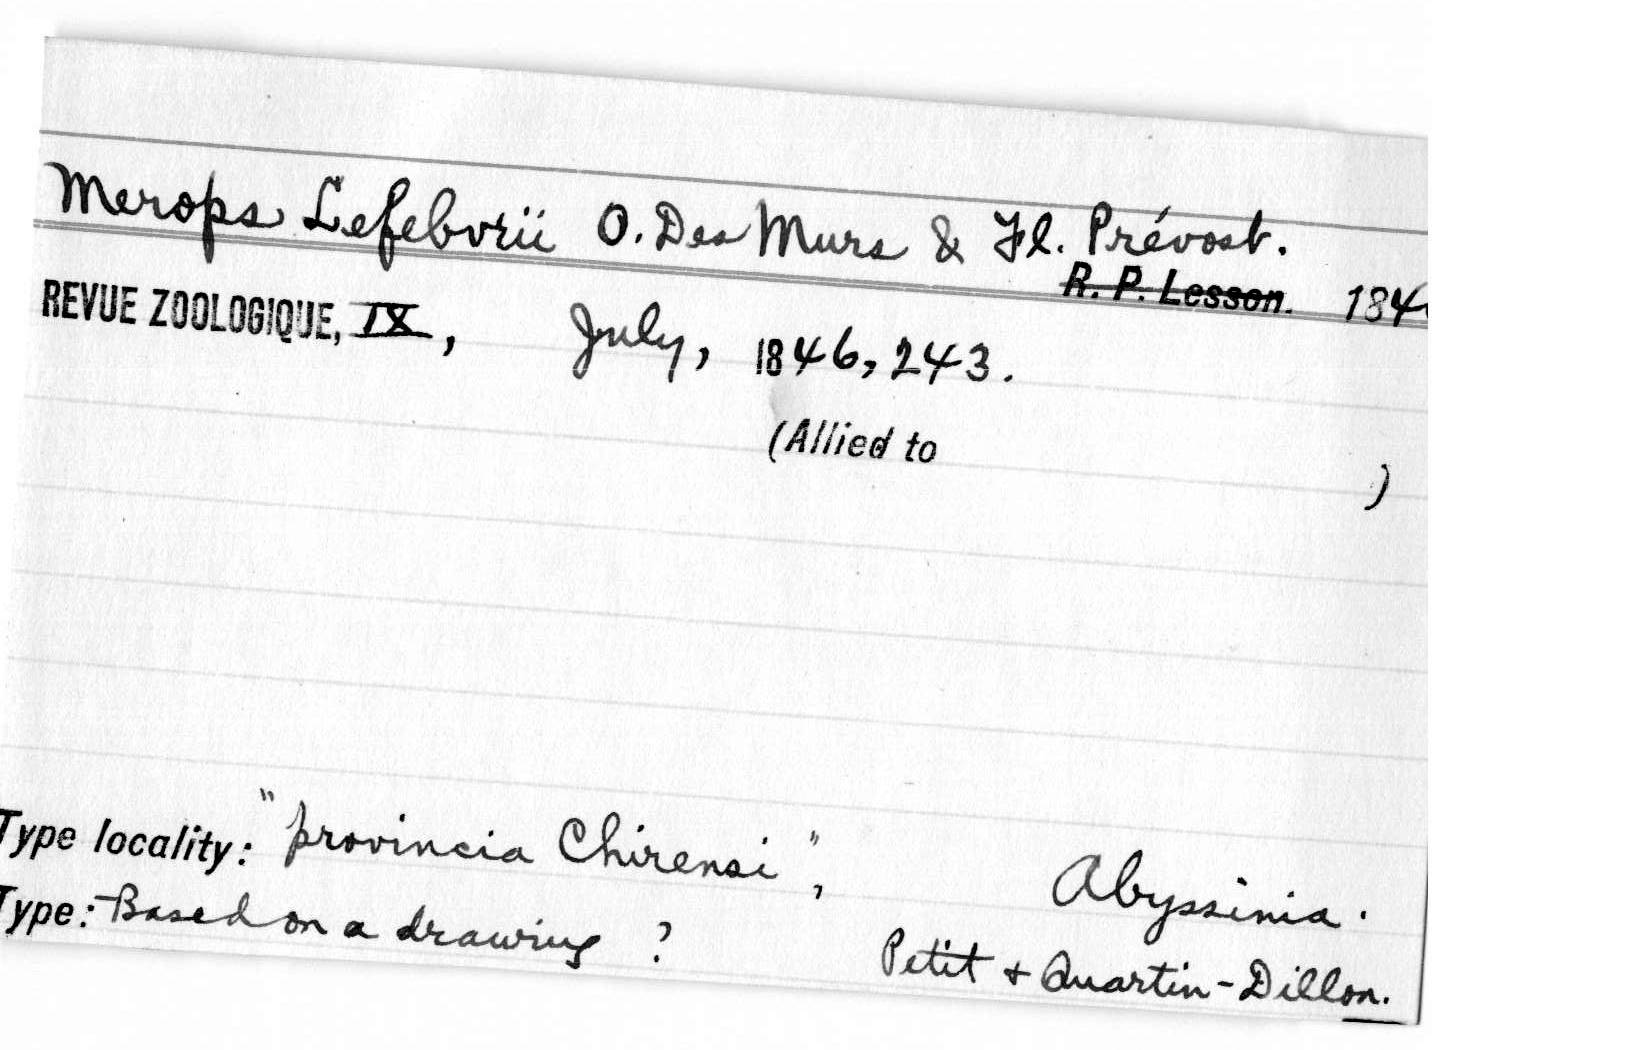 Merops Lefebvrii O. Des Murs & Fl. Prévost.
R. P. Lesson. 184
REVUE ZOOLOGIQUE, IX, July, 1846, 243.
(Allied to )
Type locality: "provincia Chirensi", Abyssinia.
Type: Based on a drawing ? Petit & Quartin-Dillon.